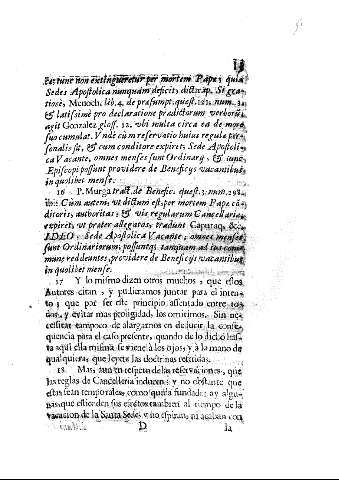 13
& tunc non extingueretur per mortem Papæ; quia
Sedes Apostolica nunquam deficit; dict. cap. Si gra-
tiosè, Menoch. lib. 4. de præsumpt. quæst. 121. num. 3.
& latissimè pro declaratione prædictorum verborū
agit Gonzalez gloss. 52. vbi multa circa ea de mo-
suo cumulat. Vndè cùm reservatio huius regulæ per-
sonalis sit, & cum conditore expiret; Sede Apostoli-
ca Vacante, omnes menses sunt Ordinarij, & tunc
Episcopi possunt providere de Beneficijs vacantibus
in quolibet mense.
16 P. Murga tract. de Benefic. quæst. 3. num. 298.
ibi: Cùm autem, vt dictum est, per mortem Papæ cō-
ditoris, authoritas, & vis regularum Cancellariæ
expiret, vt præter allegatos, tradunt Caputaq. &c.
IDEO Sede Apostolica Vacante, omnes menses
sunt Ordinariorum, possuntq; tanquam ad ius com-
mune reddeuntes, providere de Beneficijs vacantibus
in quolibet mense.
17 Y lo mismo dizen otros muchos, que estos
Autores citan, y pudieramos juntar para el inten-
to; que por ser este principio assentado entre to-
dos, y evitar mas prolixidad, los omitimos. Sin ne-
cessitar tampoco de alargarnos en deducir la conse-
quencia para el caso presente, quando de lo dicho has-
ta aqui ella misma se viene à los ojos, y à la mano de
qualquiera, que leyere las doctrinas referidas.
18 Mas, aun en respecto de las reservaciones, que
las reglas de Cancelleria inducen: y no obstante que
estas sean temporales, como queda fundado; ay algu-
nas, que estienden sus efectos tambien al tiempo de la
vacacion de la Santa Sede, y no espiran, ni acaban con
D la